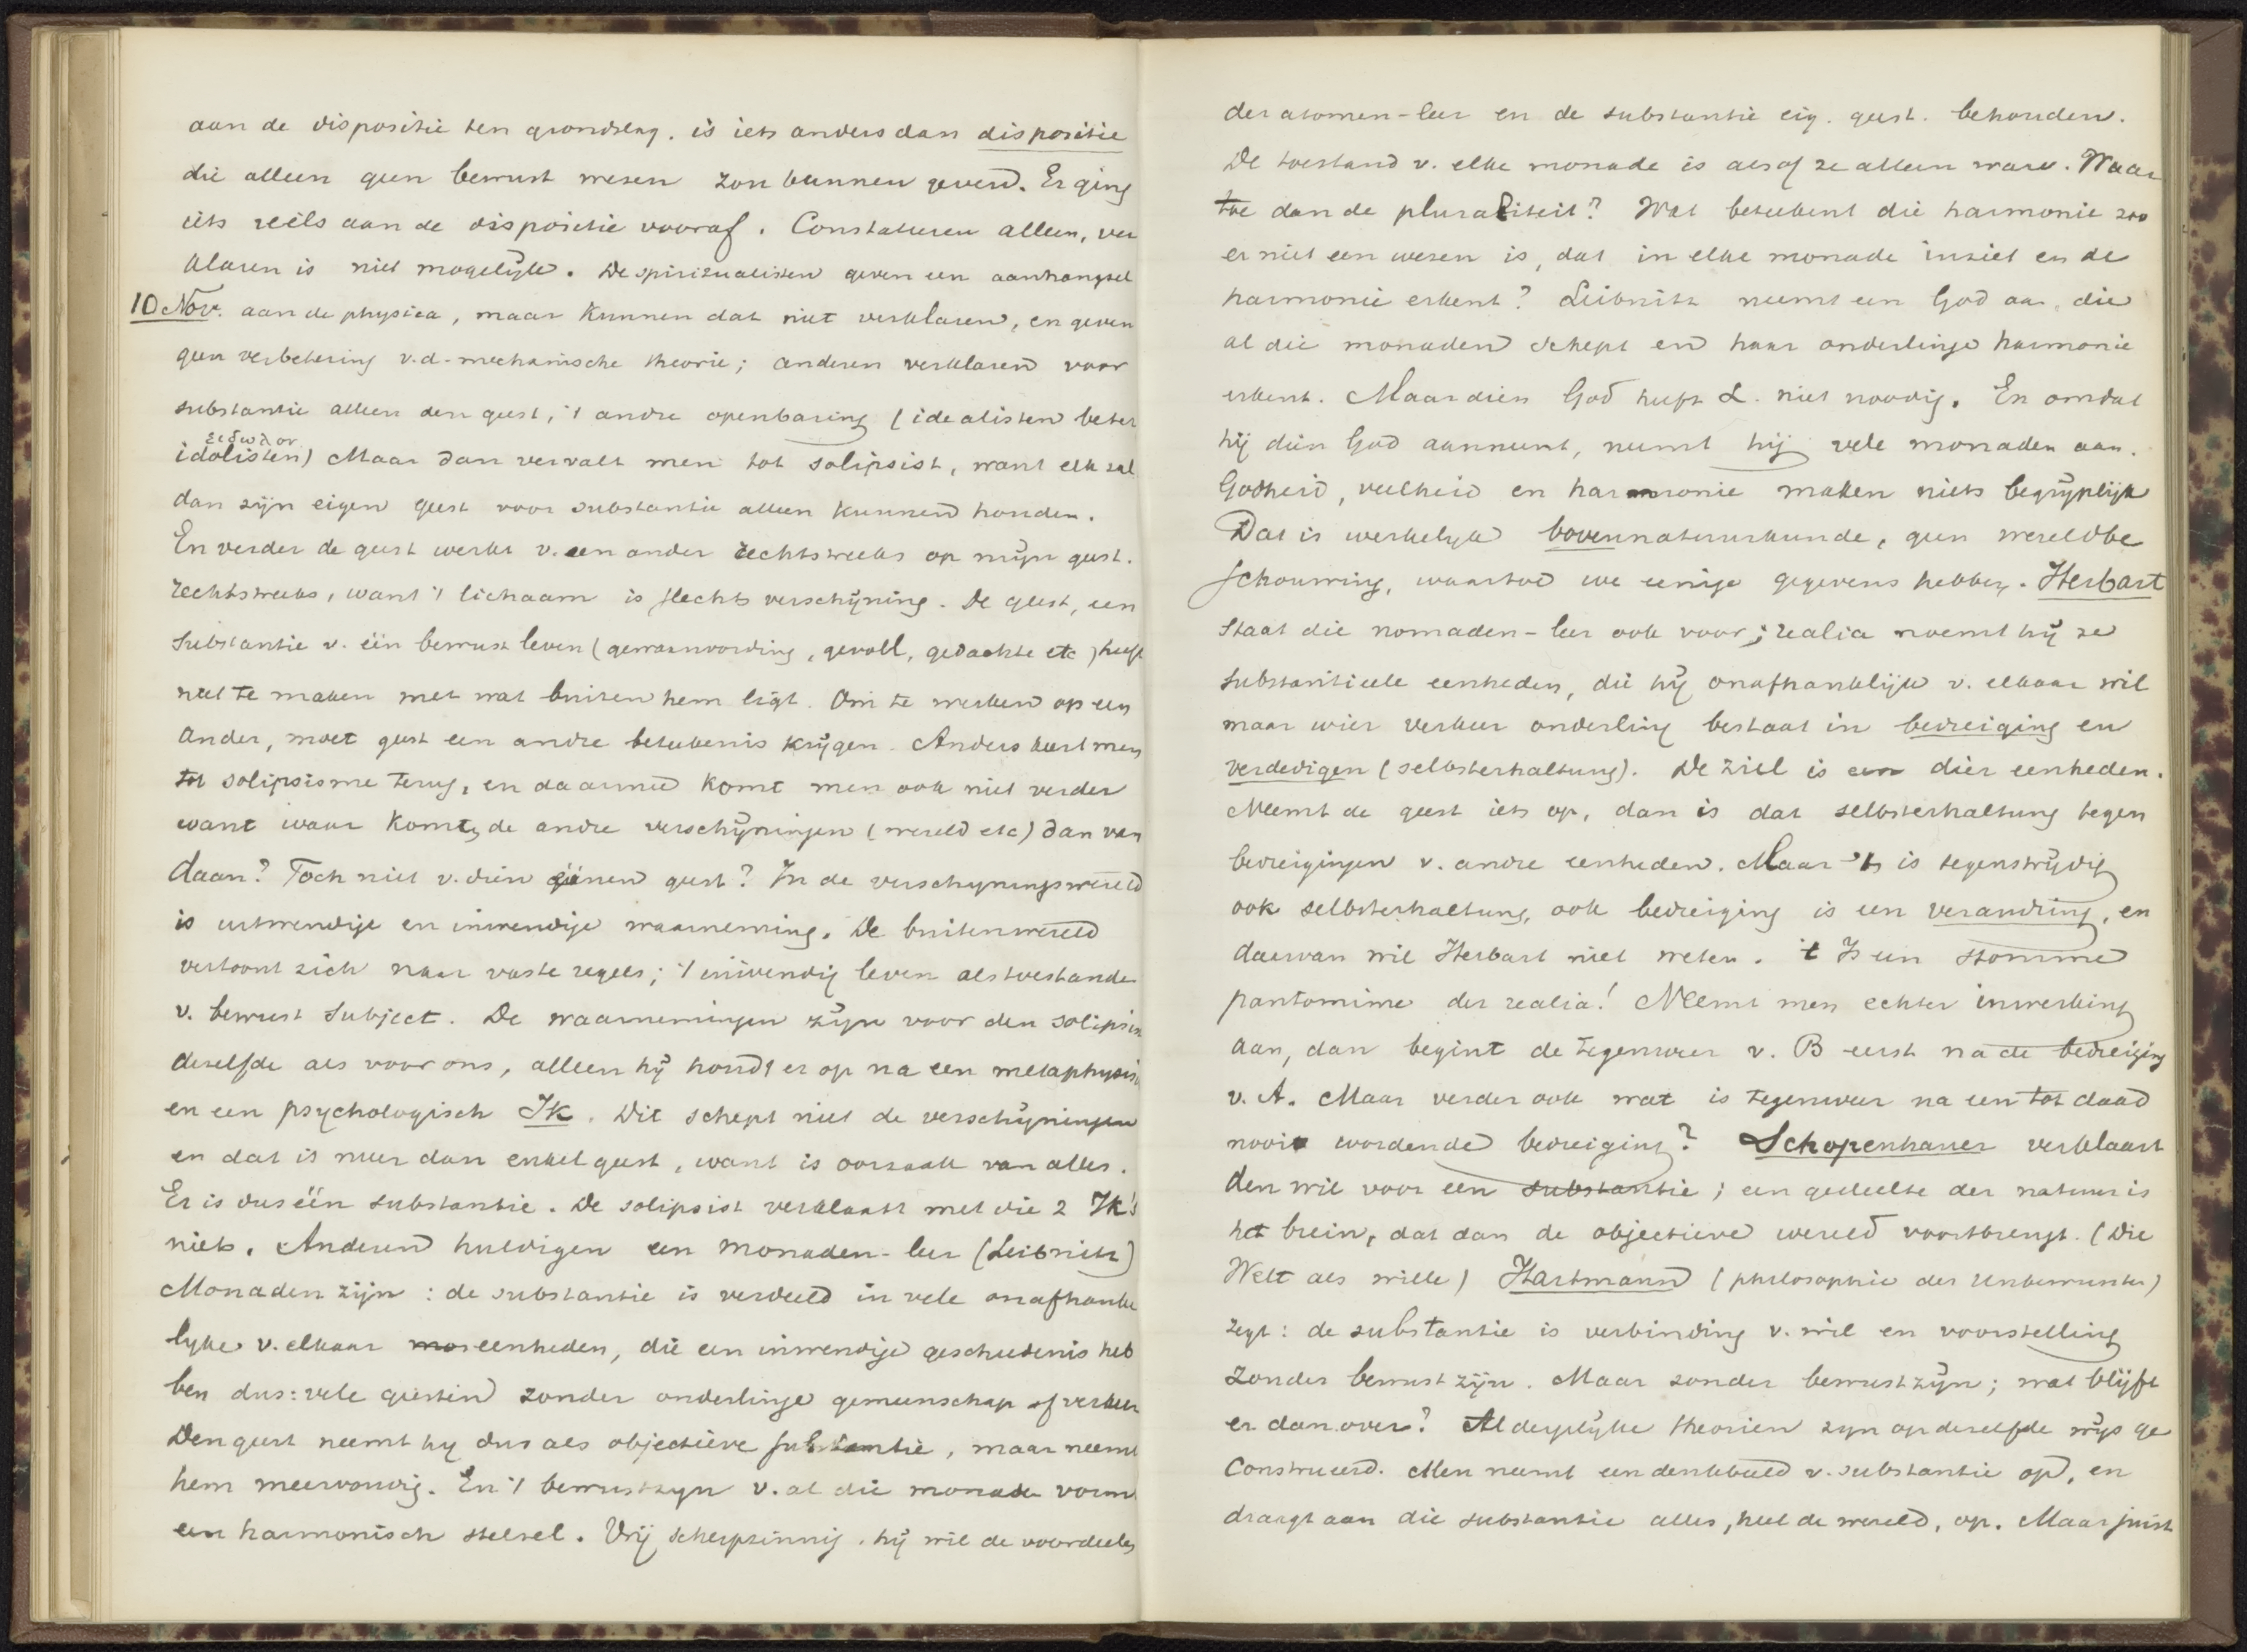 aan de dispositie ten grondslag. is iets anders dan dispositie
die alleen geen bewust wezen zou kunnen geven. Er ging
iets reëels aan de dispositie vooraf. Constateeren alleen, ver
klaren is niet mogelijk. De spiritualisten geven een aanhangsel
10 Nov. aan de physica, maar kunnen dat niet verklaren, en geven
geen verbetering v.d. mechanische theorie; anderen verklaren voor
substantie alleen den geest, 't andre openbaring (idealisten beter
εἰδωλον
idolisten) Maar dan vervalt men tot solipsist, want elk zal
dan zijn eigen geest voor substantie alleen kunnen houden.
En verder de geest werkt v. een ander rechtstreeks op mijn geest.
rechtstreeks, want 't lichaam is slechts verschijning. De geest, een
substantie v. één bewust leven (gewaarwording, gevoel, gedachte etc) heeft
niet te maken met wat buiten hem ligt. Om te werken op een
ander, moet geest een andre beteekenis krijgen. Anders keert men
tot solipsisme terug, en daarmee komt men ook niet verder
want waar komt, de andre verschijningen (wereld etc) dan van
daan? Toch niet v. dien eénen geest? In de verschyningswereld
is uitwendige en inwendige waarneming. De buitenwereld
vertoont zich naar vaste regels; 't inwendig leven als toestande
v. bewust subject. De waarnemingen zijn voor den solipsist
dezelfde als voor ons, alleen hij houdt er op na een metaphysisch
en een psychologisch Ik. Dit schept niet de verschijningen
en dat is meer dan enkel geest, want is oorzaak van alles.
Er is dus één substantie. De solipsist verklaart met die 2 Ik's
niets. Anderen huldigen een monaden-leer (Leibnitz)
Monaden zijn: de substantie is verdeeld in vele onafhanke
lyke v. elkaar eenheden, die een inwendige geschiedenis heb
ben dus: vele geesten zonder onderlinge gemeenschap of verkeer
Den geest neemt hy dus als objectieve substantie, maar neemt
hem meervoudig. En 't bewustzyn v. al die monade vorm
een harmonisch stelsel. Vrij scherpzinnig. hij wil de voordeelen
der atomen-leer en de substantie eig. geest. behouden.
De toestand v. elke monade is alsof ze alleen ware. Waar
toe dan de pluraliteit? Wat beteekent die harmonie zoo
er niet een wezen is, dat in elke monade inziet en de
harmonie erkent? Leibnitz neemt een God aan, die
al die monaden schept en haar onderlinge harmonie
erkent. Maar dien God heeft L. niet noodig. En omdat
hij dien God aanneemt, neemt hij vele monaden aan.
Godheid, veelheid en harmonie maken niets begrijplijk
Dat is werkelyk bovennatuurkunde, geen wereldbe
schouwing, waartoe we eenige gegevens hebben. Herbart
staat die nomaden-leer ook voor; realia noemt hij ze
substantieele eenheden, die hij onafhanklijk v. elkaar wil
maar wier verkeer onderling bestaat in bedreiging en
verdedigen (selbsterhaltung). De ziel is een dier eenheden.
Neemt de geest iets op, dan is dat selbsterhaltung tegen
bedreigingen v. andre eenheden. Maar 't is tegenstrijdig
ook selbsterhaltung, ook bedreiging is een verandring, en
daarvan wil Herbart niet weten. 't Is een stomme
pantomime der realia! Neemt men echter inwerking
aan, dan begint de tegenweer v. B eerst na de bedreiging
v. A. Maar verder ook wat is tegenweer na een tot daad
nooit wordende bedreiging? Schopenhauer verklaart
den wil voor een substantie; een gedeelte der natuur is
het brein, dat dan de objectieve wereld voortbrengt. (Die
Welt als wille) Hartmann (philosophie des Unbewussten)
zegt: de substantie is verbinding v. wil en voorstelling
zonder bewust zijn. Maar zonder bewustzijn; wat blijft
er dan over? Al dergelijke theorien zyn op dezelfde wijs ge
construeerd. Men neemt een denkbeeld v. substantie op, en
draagt aan die substantie alles, heel de wereld, op. Maar juist